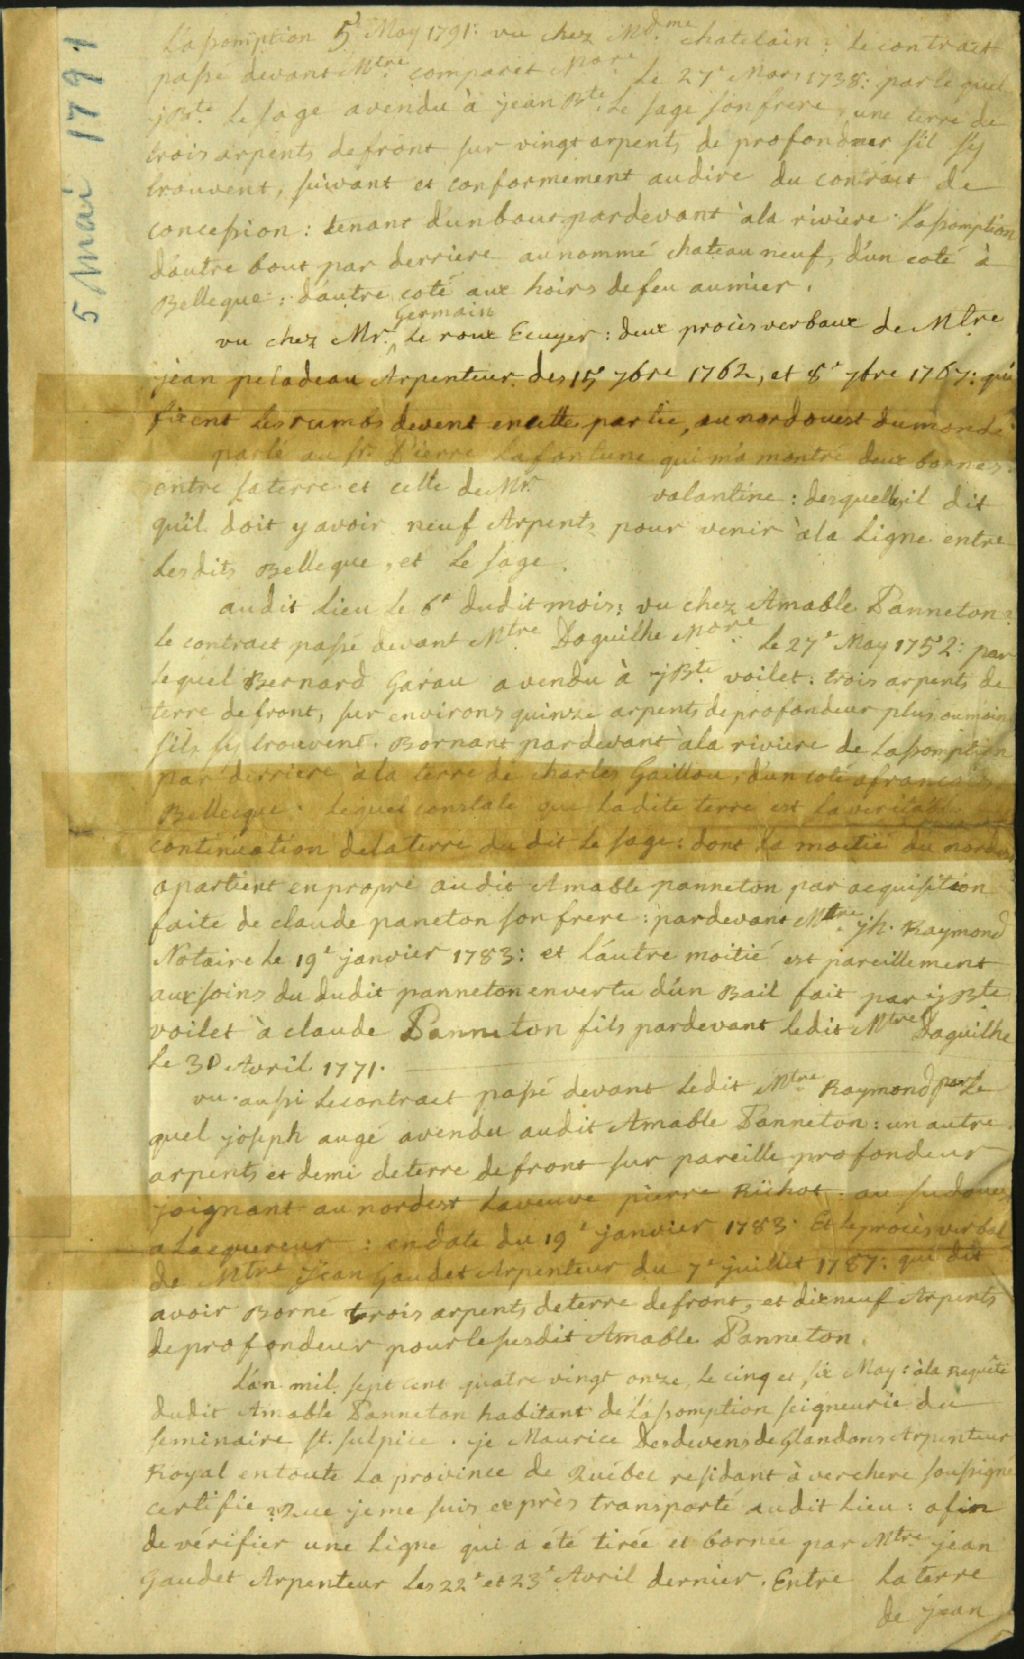 5 Mai 1791
L'assomption 5e May 1791: vu chez Md.me chatelain: le contract
passé devant Mtre comparet Nore Le 27e Mars 1738: par le quel
jBte. Le sage a vendu à jean Bte. Le sage son frere, une terre de
trois arpents de front sur vingt arpents de profondeur s'il s'y
trouvent, suivant et conformement au dire du contract de
concession: tenant d'un bout par devant à la riviere L'assomption
d'autre bout par derriere au nommé chateau neuf, d'un coté à
Belleque: d'autre coté aux hoirs de feu aumier.
vu chez Mr. Germain Le roux Ecuyer: deux procès verbaux de Mtre
jean peladeau Arpenteur des 15e 7bre 1762, et 8e 7bre 1767: qui
fixent Les rumbs de vent en cette partie, au nord ouest du monde
parlé au sr. Pierre Lafortune qui m'a montré deux bornes
entre sa terre et celle de Mr. valantine: desquelles il dit
qu'il doit y avoir neuf Arpents pour venir à la Ligne entre
Les dits Belleque, et Le sage.
au dit Lieu Le 6e du dit mois: vu chez Amable Panneton:
le contract passé devant Mtre Daguilhe Nore Le 27e May 1752: par
lequel Bernard Garau a vendu à jBte. voilet: trois arpents de
terre de front, sur environs quinze arpents de profondeur plus ou moins
s'ils s'y trouvent. Bornant par devant à la riviere de Lassomption
par derriere à la terre de charles Gaillou, d'un coté a francois
Bellecque. Lequel constate que ladite terre est la veritable
continuation de la terre du dit Le sage: dont La moitié du nordest
apartient en propre au dit Amable panneton par acquisition
faite de claude paneton son frere: pardevant Mtre jh. Raymond
Notaire Le 19e janvier 1783: et L'autre moitié est pareillement
aux soins du dudit panneton en vertu d'un Bail fait par jBte
voilet à claude Panneton fils pardevant le dit Mtre Daguilhe
Le 30 Avril 1771.
vu aussi Le contract passé devant Le dit Mtre Raymond par Le
quel joseph augé a vendu au dit Amable Panneton: un autre
arpents et demi de terre de front sur pareille profondeur
joignant au nordest La veuve pierre Richot. au sudouest
a Laquereur: en date du 19e janvier 1783. Et le procès verbal
de Mtre Jean Gaudet Arpenteur du 7e juillet 1787: qui dit
avoir Borné trois arpents de terre de front, et dixneuf Arpents
de profondeur pour le susdit Amable Panneton.
L'an mil sept cent quatre vingt onze, Le cinq et six May: à la Requête
dudit Amable Panneton habitant de L'assomption seigneurie du
seminaire st. sulpice. je Maurice Desdevens de Glandons Arpenteur
Royal en toute La province de Quebec residant à verchere soussigné
certifie Que je me suis exprès transporté au dit Lieu: afin
de vérifier une Ligne qui a été tirée et bornée par Mtre jean
Gaudet Arpenteur Les 22e et 23e Avril dernier. Entre La terre
de jean